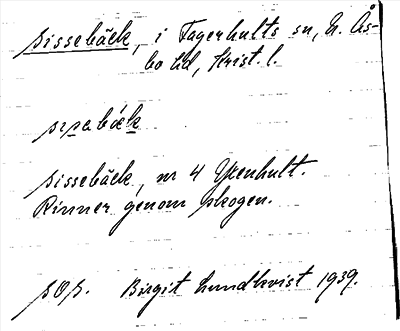 Sissebäck, i Fagerhults sn, N. Ås-
bo hd, Krist. l.
Sissebäck, nr 4 Ykenhult.
Rinner genom skogen.
Birgit Lundkvist 1939.